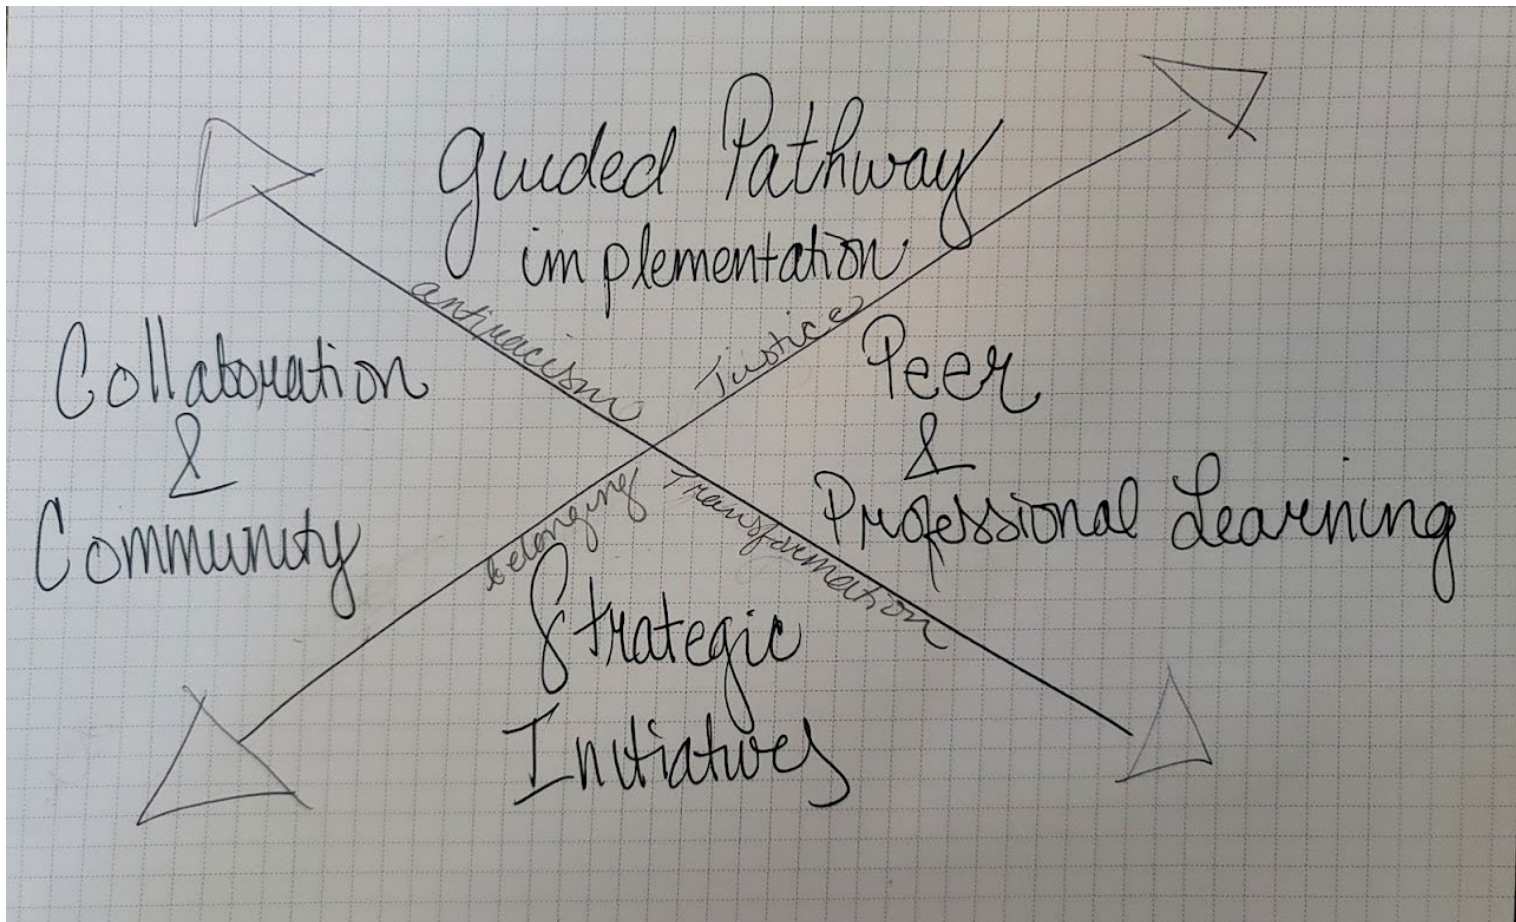 guided Pathway
implementation
antiracism
Justice
Collaboration
&
Community
Peer
&
Professional Learning
belonging
Transformation
Strategic
Initiatives